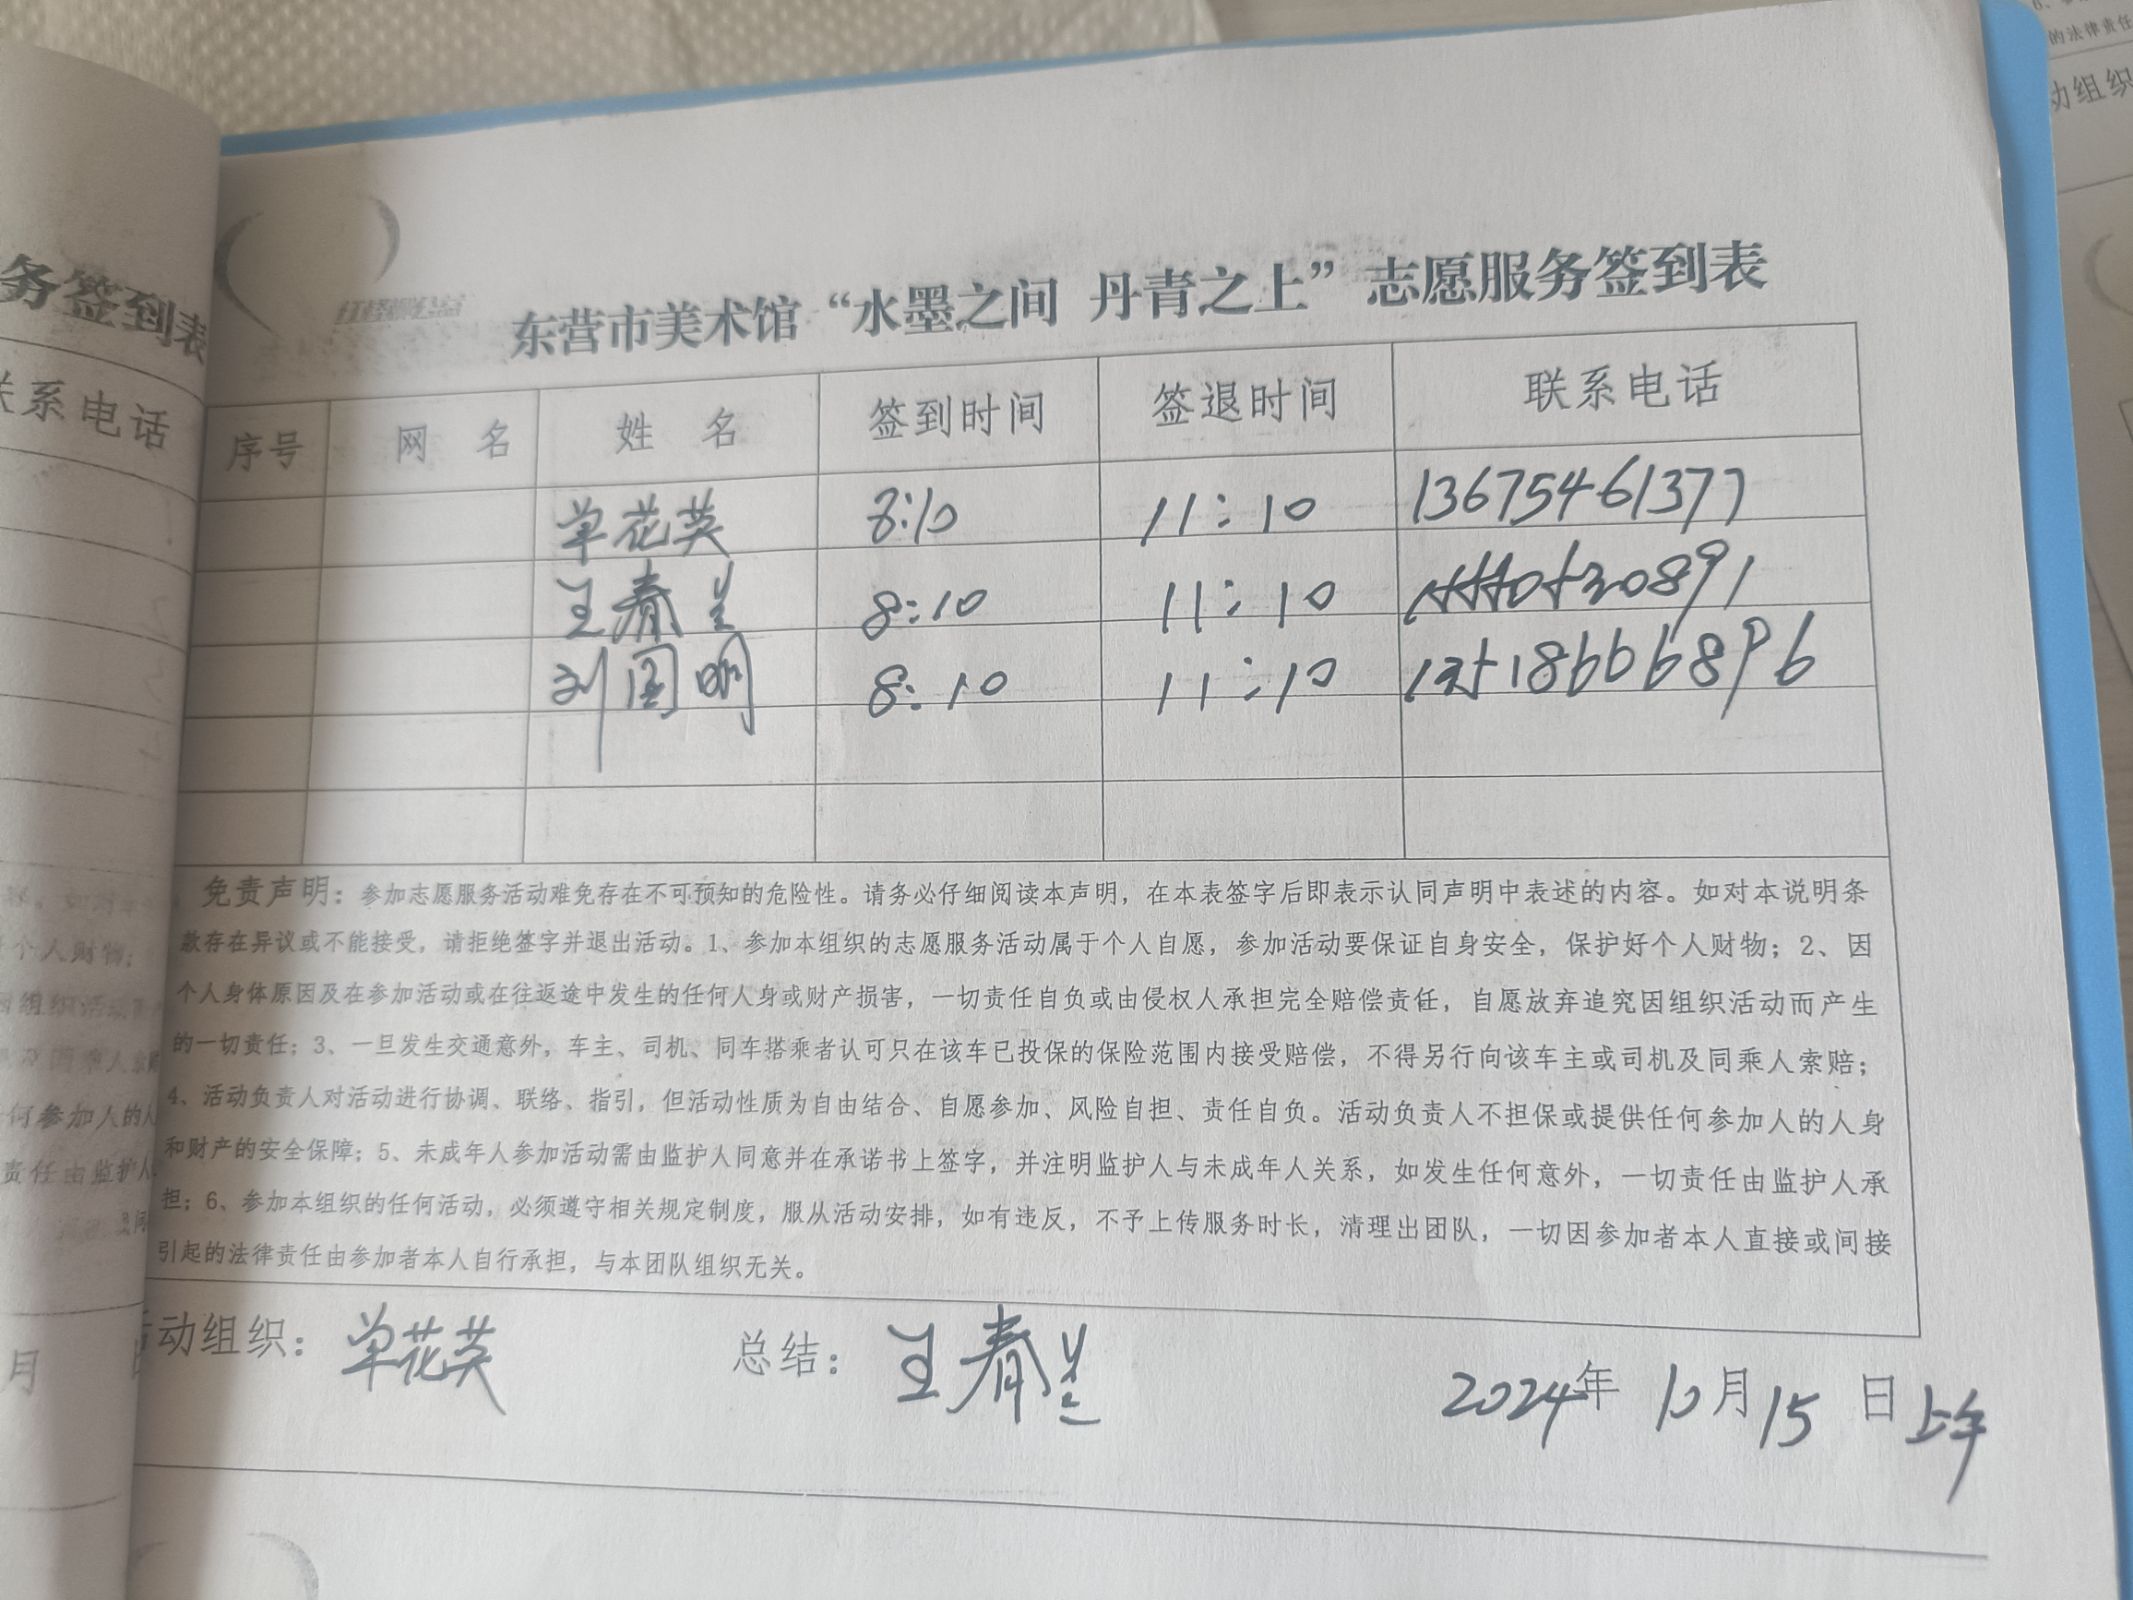 务签到表
联系电话
东营市美术馆“水墨之间 丹青之上”志愿服务签到表
序号 网 名 姓 名 签到时间 签退时间 联系电话
单花英 8:10 11:10 13675461377
王春兰 8:10 11:10
刘国明 8:10 11:10
免责声明：参加志愿服务活动难免存在不可预知的危险性。请务必仔细阅读本声明，在本表签字后即表示认同声明中表述的内容。如对本说明条
款存在异议或不能接受，请拒绝签字并退出活动。1、参加本组织的志愿服务活动属于个人自愿，参加活动要保证自身安全，保护好个人财物；2、因
个人身体原因及在参加活动或在往返途中发生的任何人身或财产损害，一切责任自负或由侵权人承担完全赔偿责任，自愿放弃追究因组织活动而产生
的一切责任；3、一旦发生交通意外，车主、司机、同车搭乘者认可只在该车已投保的保险范围内接受赔偿，不得另行向该车主或司机及同乘人索赔；
4、活动负责人对活动进行协调、联络、指引，但活动性质为自由结合、自愿参加、风险自担、责任自负。活动负责人不担保或提供任何参加人的人身
和财产的安全保障；5、未成年人参加活动需由监护人同意并在承诺书上签字，并注明监护人与未成年人关系，如发生任何意外，一切责任由监护人承
担；6、参加本组织的任何活动，必须遵守相关规定制度，服从活动安排，如有违反，不予上传服务时长，清理出团队，一切因参加者本人直接或间接
引起的法律责任由参加者本人自行承担，与本团队组织无关。
活动组织：单花英 总结：王春兰 2024年 10月15日上午
个人财物；
何参加人的人
责任由监护人
月
的法律责任
动组织